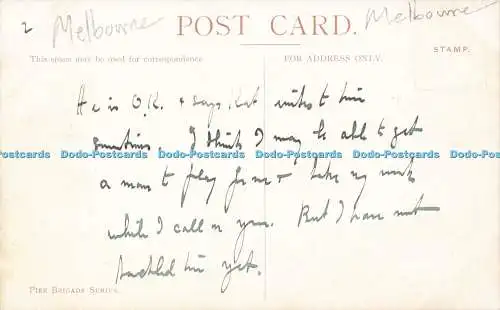 2 Melbourne POST CARD. Melbourne
This space may be used for correspondence
FOR ADDRESS ONLY.
STAMP.
He is O.K. & says Kat writes to him
sometimes. I think I may be able to get
Dodo-Postcards Dodo-Postcards Dodo-Postcards Dodo-Postcards Dodo-Postcards
a man to play for me & take my work
while I call on you. But I have not
tackled him yet.
FIRE BRIGADE SERIES.